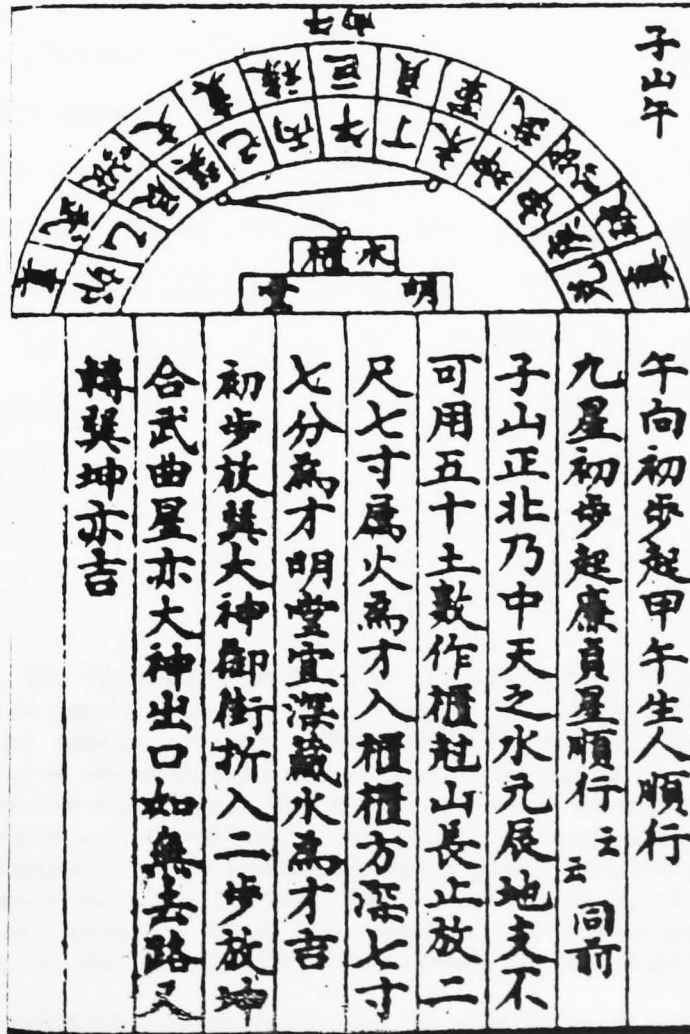 子山午
武 貞 巨 祿 文
酉 庚 申 坤 未 丁 午 丙 巳 巽 辰 乙 卯
水櫃
明堂
午向初步起甲午生人順行
九星初步起廉貞星順行云云同前
子山正北乃中天之水元辰地支不
可用五十土數作櫃尅山長止放二
尺七寸屬火為才入櫃櫃方深七寸
七分為才明堂宜深藏水為才吉
初步放巽大神御街折入二步放坤
合武曲星亦大神出口如無去路又
轉巽坤亦吉